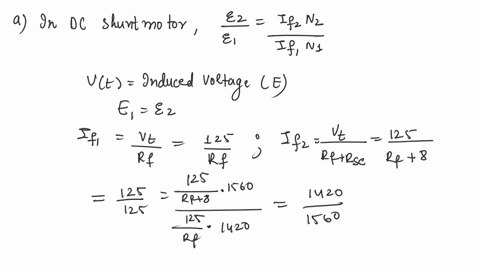 a) In DC shunt motor, E2/E1 = If2 N2 / If1 N1
V(t) = Induced Voltage (E)
E1 = E2
If1 = Vt/Rf = 125/Rf ; If2 = Vt/Rf+Rse = 125/Rf + 8
= 125/125 = 125/Rf+8 · 1560 / 125/Rf · 1420 = 1420/1560